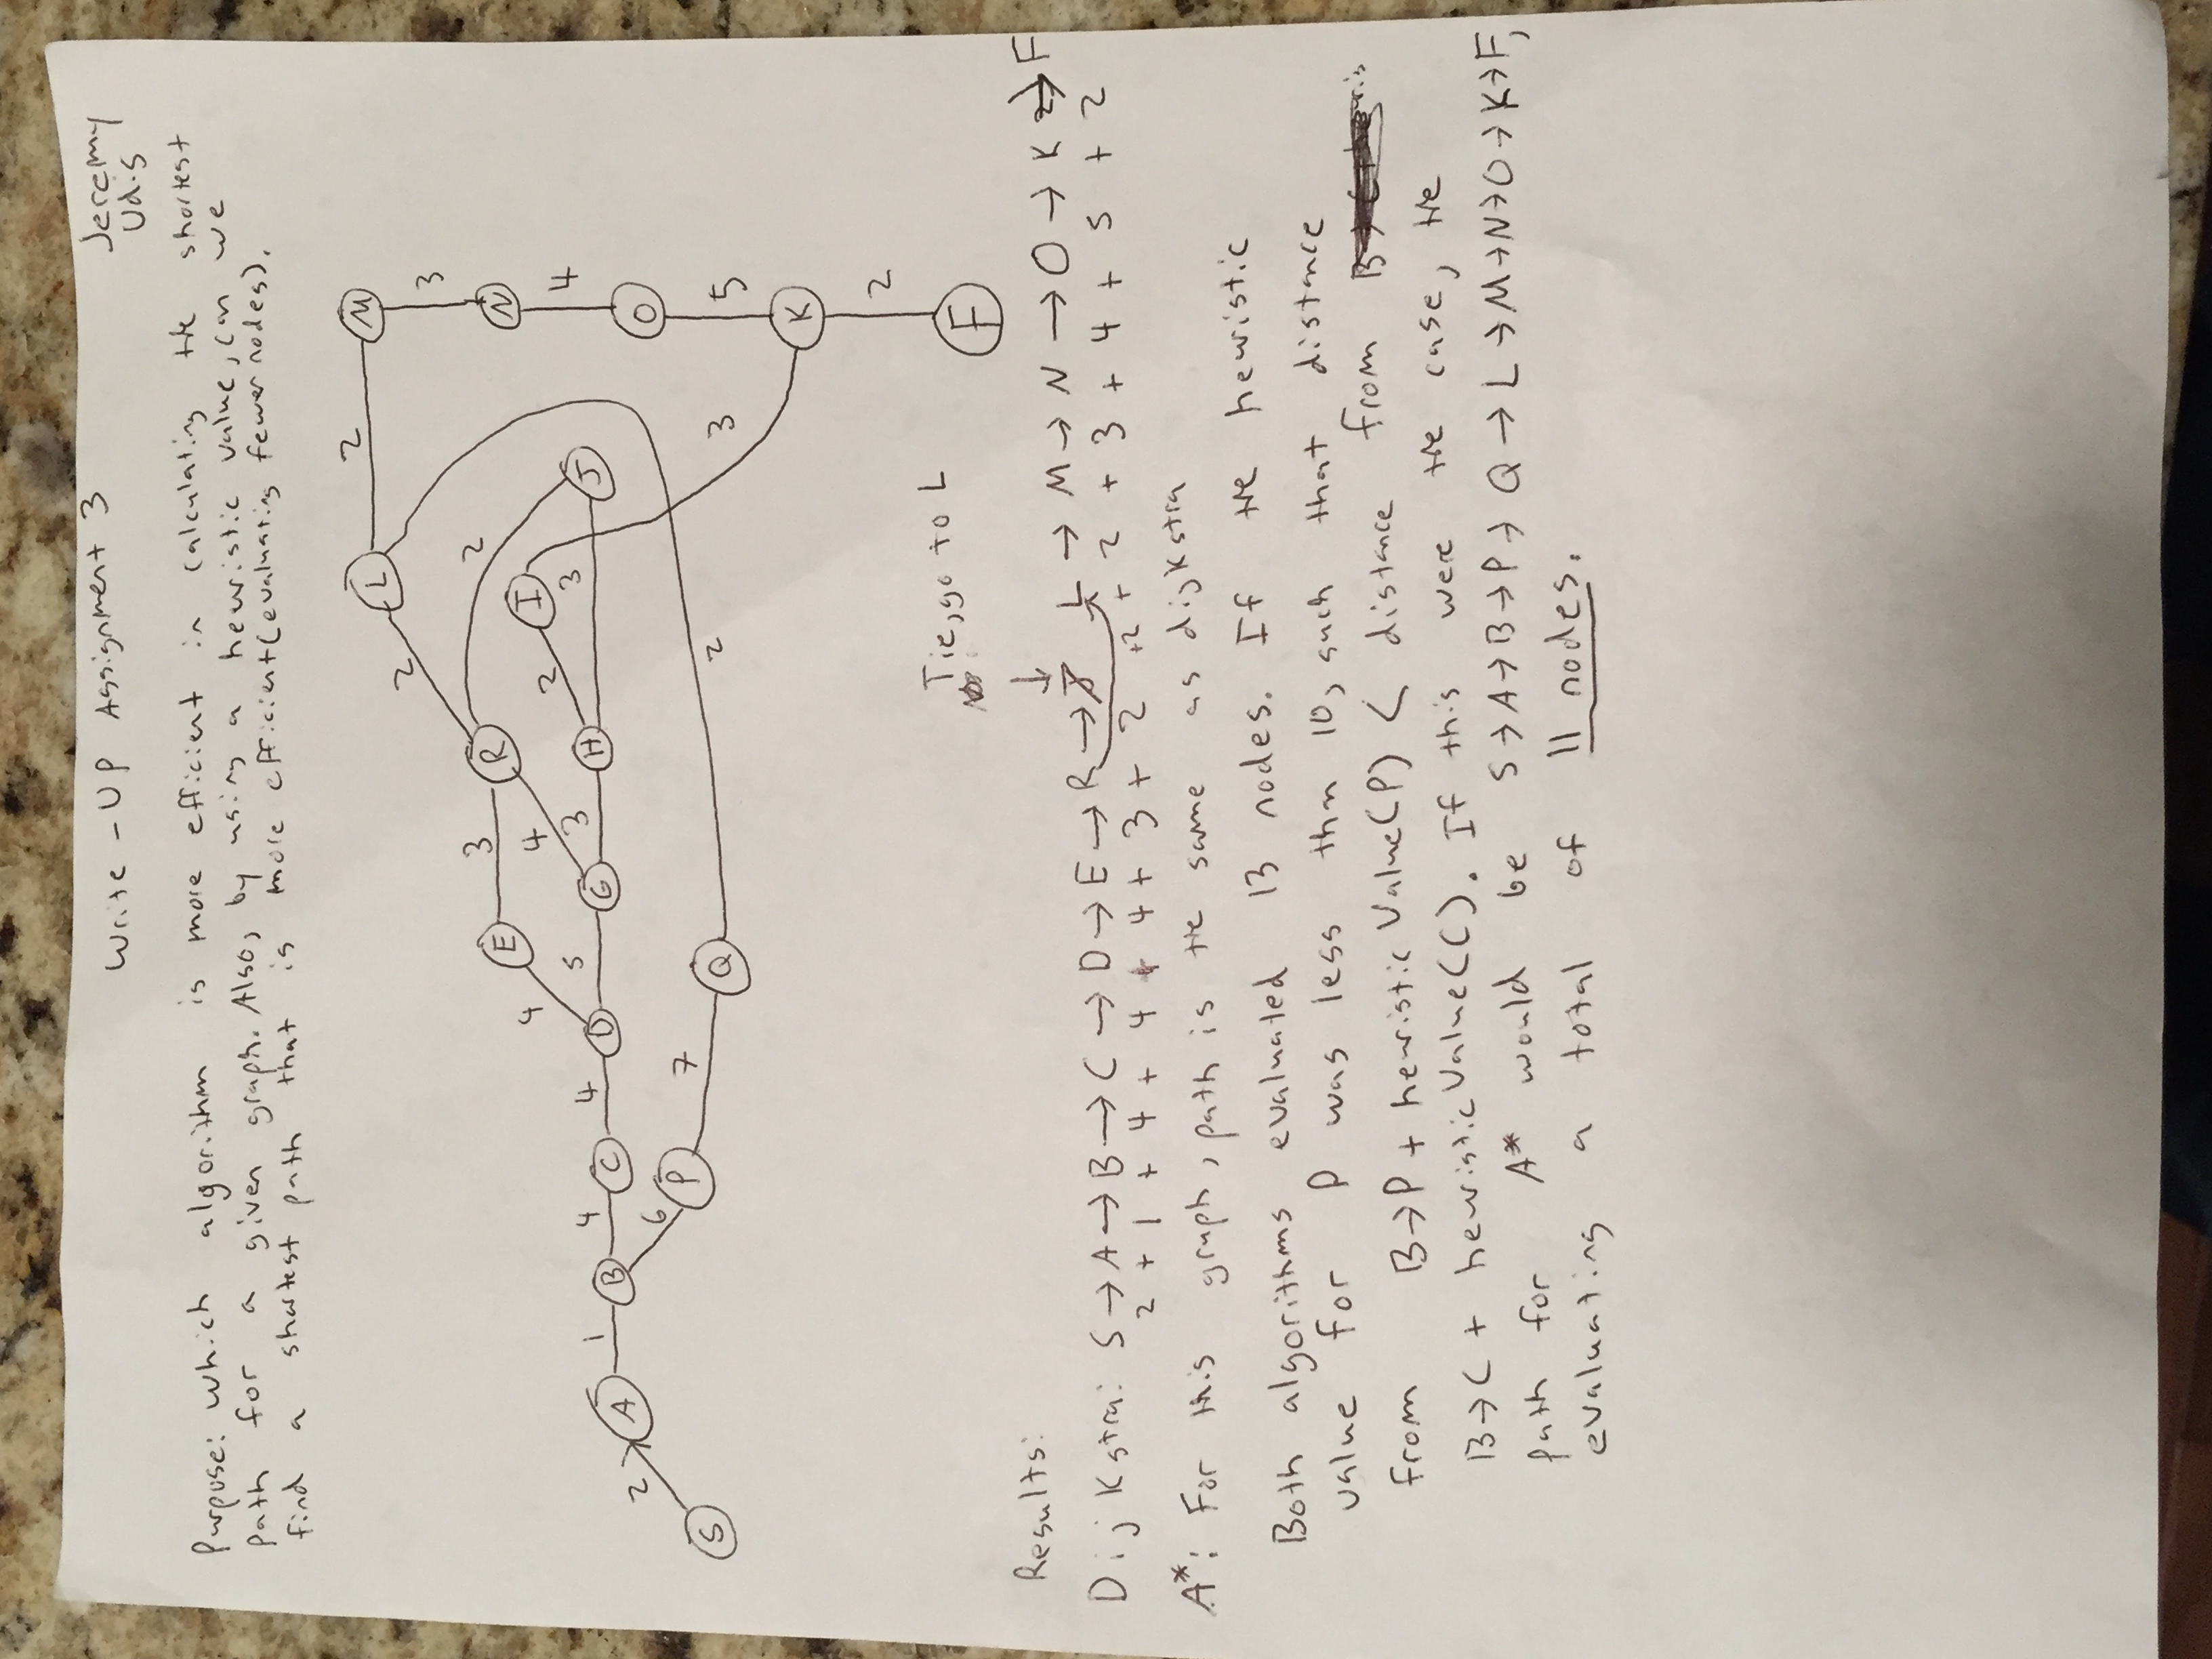 Write - UP Assignment 3
Jeremy
Udis
Purpose: which algorithm is more efficient in calculating the shortest
path for a given graph. Also, by using a heuristic value, can we
find a shortest path that is more efficient (evaluating fewer nodes).
L 2 M
2 3
E 3 R 2 N
4 4 I
2 4
A 1 B 4 C 4 D 5 G 3 H 3 J
2 6 O
P 7 Q 2
S 3 5
K
2
Tie, go to L
F
Results:
Dijkstra: S → A → B → C → D → E → R → J L → M → N → O → K → F
2 + 1 + 4 + 4 + 4 + 3 + 2 +2 + 2 + 3 + 4 + 5 + 2
A*: For this graph, path is the same as dijkstra
Both algorithms evaluated 13 nodes. If the heuristic
value for P was less than 10, such that distance
from B→P + heuristic Value(P) < distance from B
B→C + heuristic Value(C). If this were the case, the
path for A* would be S→A→B→P→Q→L→M→N→O→K→F,
evaluating a total of 11 nodes.